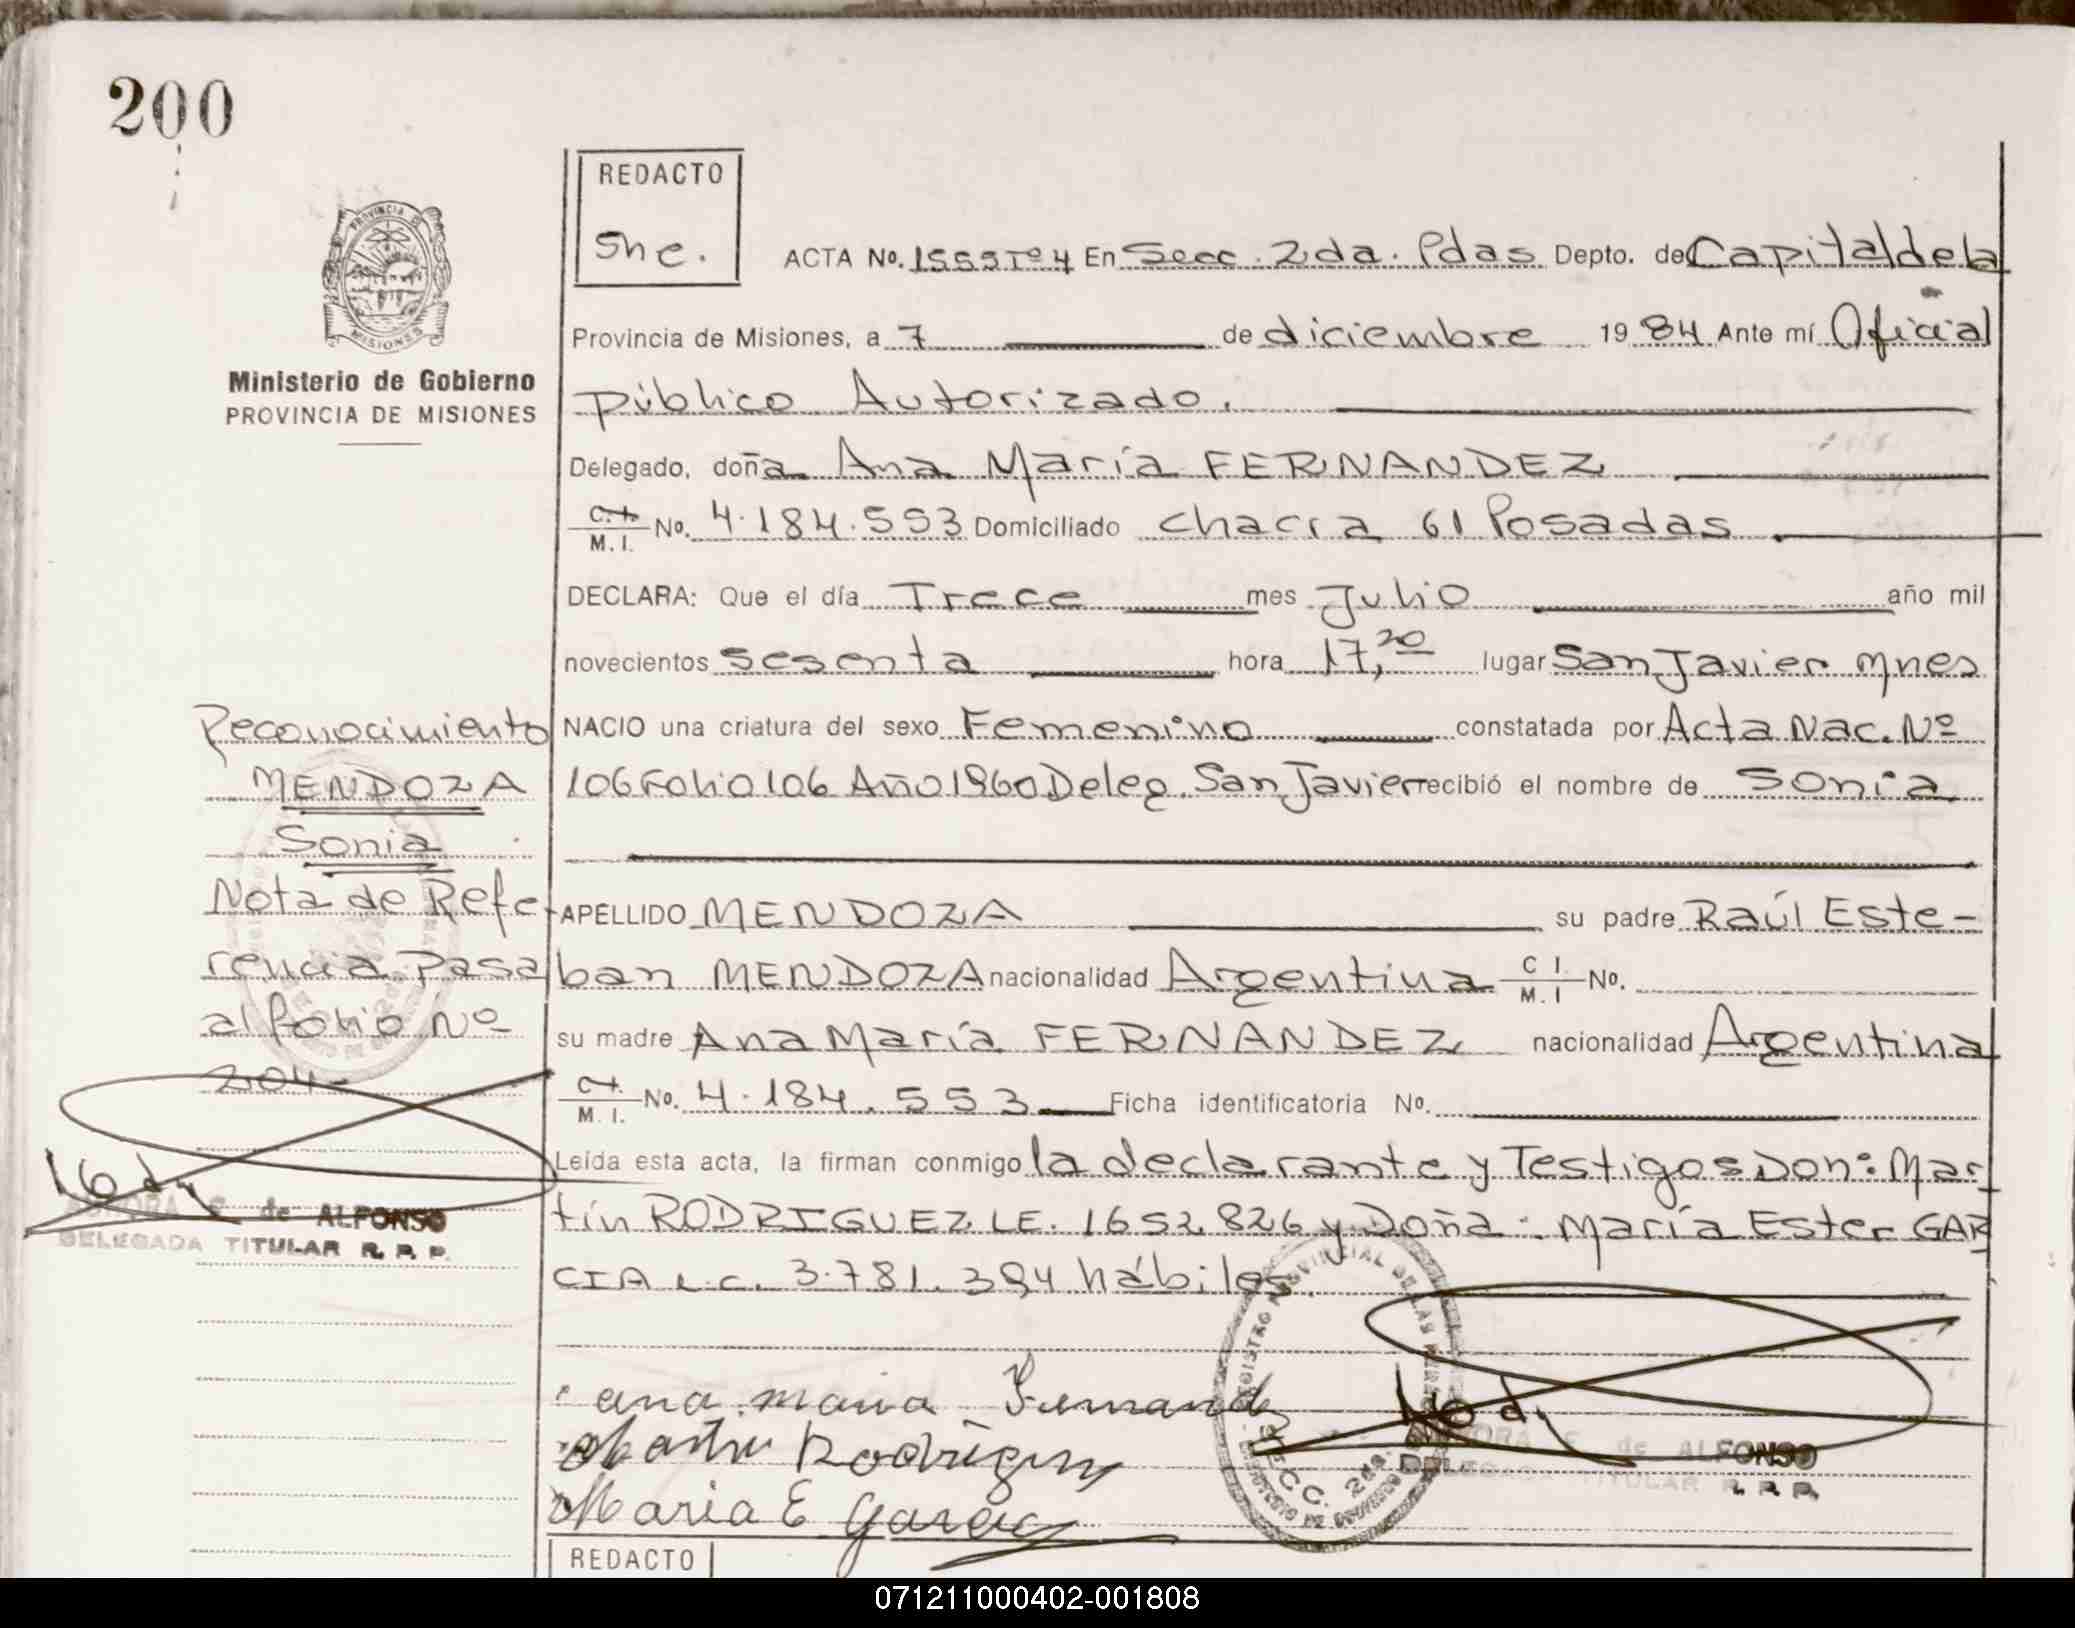 200
REDACTO
She.
PROVINCIA DE
MISIONES
Ministerio de Gobierno
PROVINCIA DE MISIONES
ACTA No. 1555 Tº 4 En Secc. 2da. Pdas Depto. de Capital de la
Provincia de Misiones, a 7 de diciembre 1984 Ante mí Oficial
Público Autorizado.
Delegado, doña Ana María FERNANDEZ
C.I. M.I. No. 4.184.553 Domiciliado Chacra 61 Posadas
DECLARA: Que el día Trece mes Julio año mil
novecientos sesenta hora 17,20 lugar San Javier Mnes
NACIO una criatura del sexo Femenino constatada por Acta Nac. Nº
106 Folio 106 Año 1960 Deleg. San Javier recibió el nombre de Sonia
APELLIDO MENDOZA su padre Raúl Este-
ban MENDOZA nacionalidad Argentina C I M. I No.
su madre Ana María FERNANDEZ nacionalidad Argentina
C.I. M. I. No. 4.184.553 Ficha identificatoria No.
Leída esta acta, la firman conmigo la declarante y Testigos Don: Mar-
tín RODRIGUEZ L.E. 1652826 y Doña: María Ester GAR
CIA L.C. 3.781.394 hábiles.
Reconocimiento
MENDOZA
Sonia
Nota de Refe-
rencia Pasa
al folio Nº
204
de ALFONSO
DELEGADA TITULAR R. P. P.
ana maria Fernand
Martin Rodriguez
Maria E Garcia
SECC. 2da.
de ALFONSO
DELEGADA TITULAR R. P. P.
REDACTO
071211000402-001808